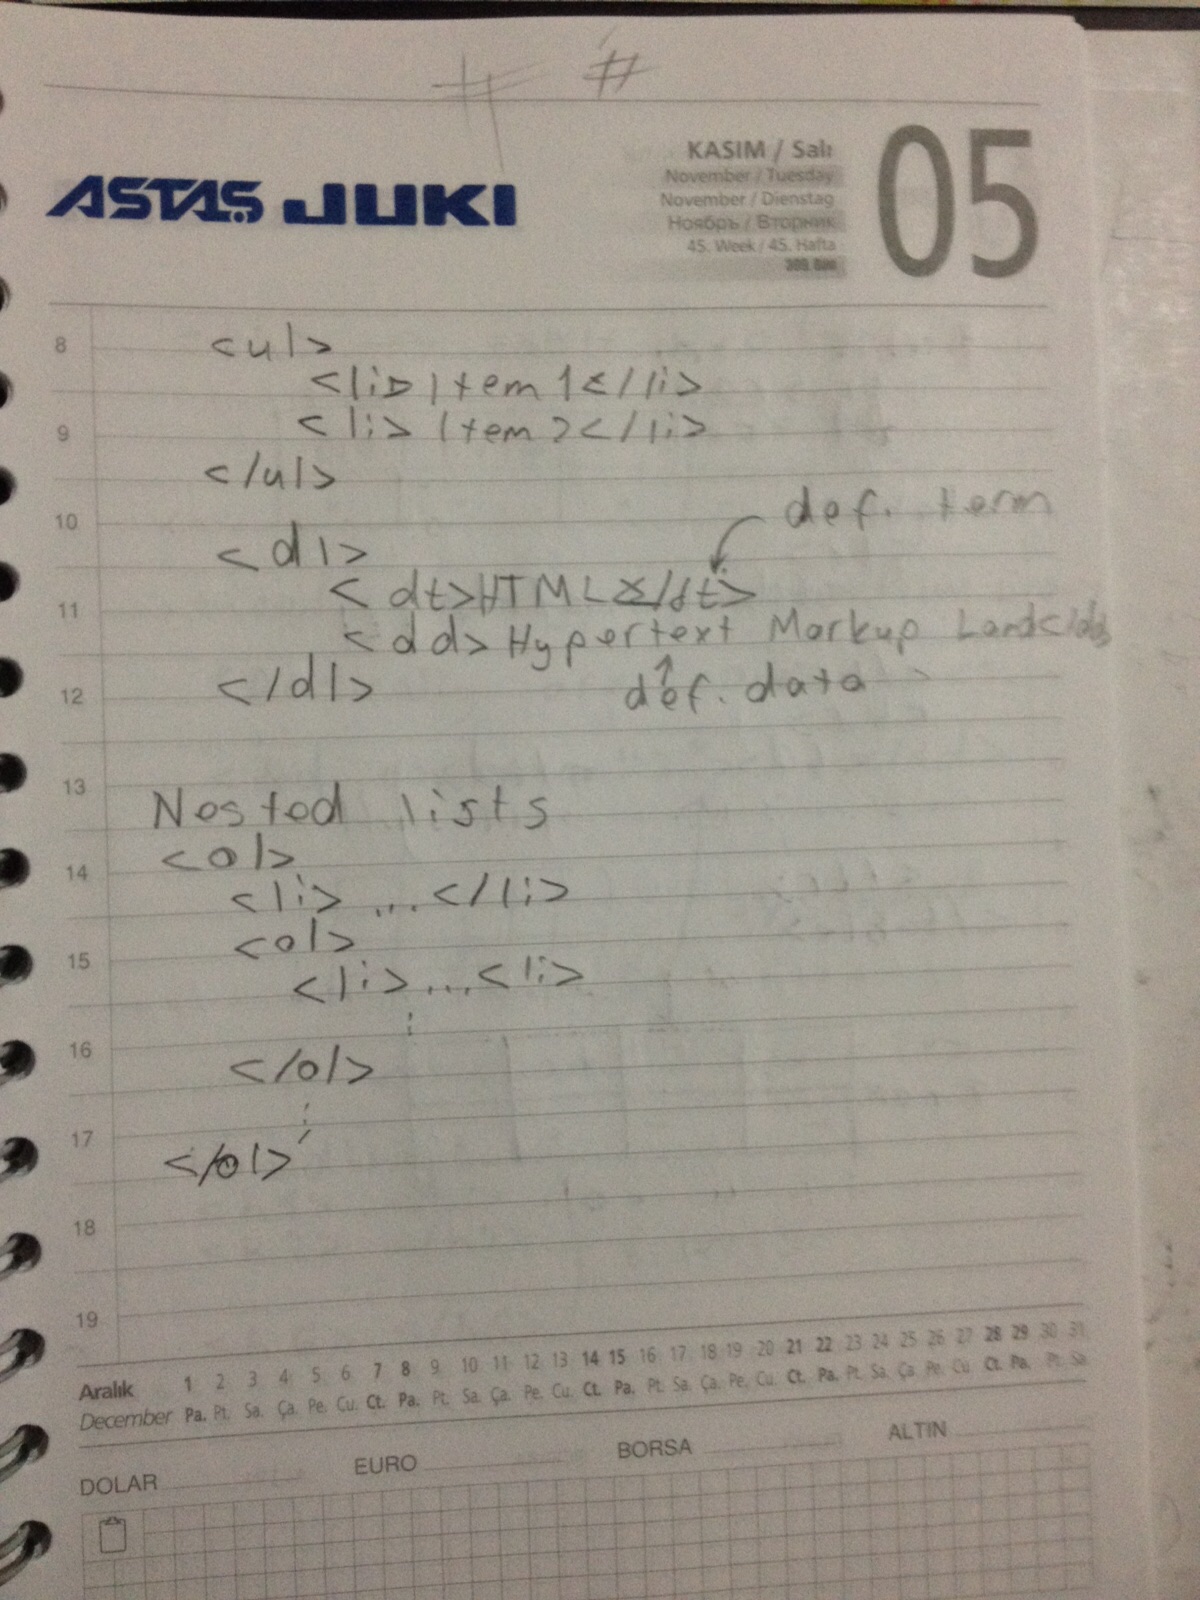 # #
ASTAŞ JUKI
KASIM / Salı
November / Tuesday
November / Dienstag
Ноябрь / Вторник
45. Week / 45. Hafta
05
8
<ul>
<li> Item 1</li>
9
<li> Item 2</li>
</ul>
10
def. term
<dl>
<dt>HTML</dt>
11
<dd> Hypertext Markup Lan</dd>
</dl>
12
def. data
13
Nested lists
<ol>
14
<li> ...</li>
<ol>
15
<li>...<li>
16
</ol>
17
</ol>
18
19
Aralık 1 2 3 4 5 6 7 8 9 10 11 12 13 14 15 16 17 18 19 20 21 22 23 24 25 26 27 28 29 30 31
December Pa. Pt. Sa. Ça. Pe. Cu. Ct. Pa. Pt. Sa. Ça. Pe. Cu. Ct. Pa. Pt. Sa. Ça. Pe. Cu. Ct. Pa. Pt. Sa. Ça. Pe. Cu. Ct. Pa. Pt. Sa.
DOLAR EURO BORSA ALTIN